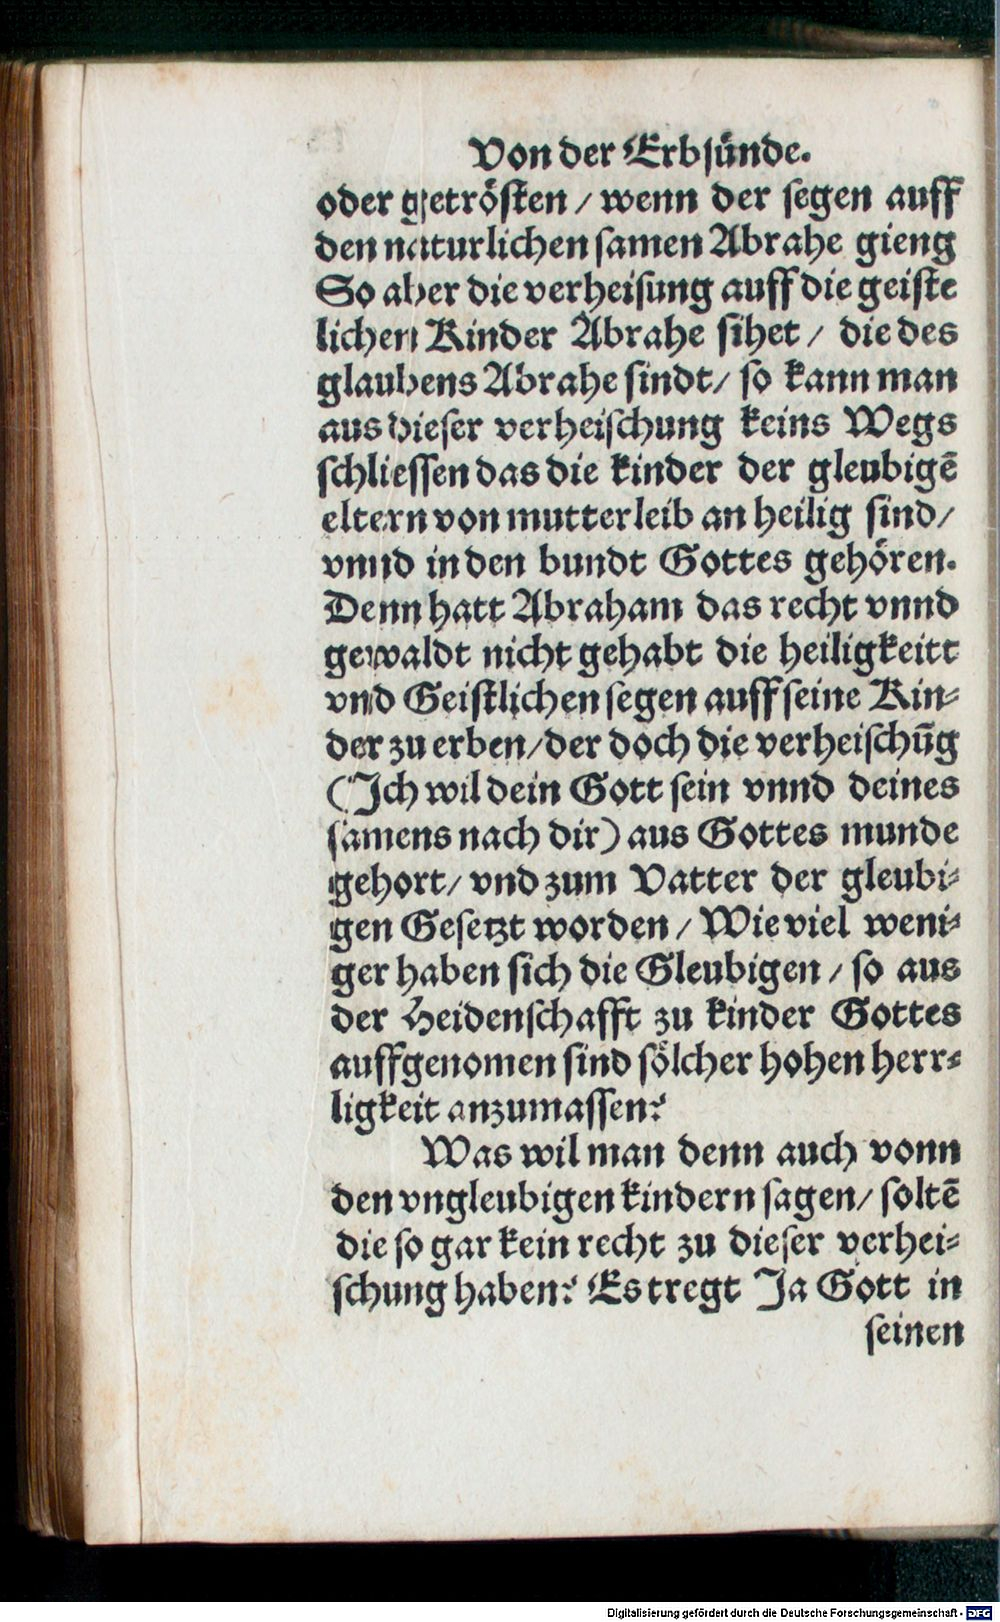 Von der Erbsünde.
oder getrösten / wenn der segen auff
den naturlichen samen Abrahe gieng
So aber die verheisung auff die geiste
lichen Kinder Abrahe sihet / die des
glaubens Abrahe sindt / so kann man
aus dieser verheischung keins Wegs
schliessen das die kinder der gleubigē
eltern von mutterleib an heilig sind /
vnnd in den bundt Gottes gehören.
Denn hatt Abraham das recht vnnd
gewaldt nicht gehabt die heiligkeitt
vnd Geistlichen segen auff seine Kin⸗
der zu erben / der doch die verheischūg
(Ich wil dein Gott sein vnnd deines
samens nach dir) aus Gottes munde
gehort / vnd zum Vatter der gleubi⸗
gen Gesetzt worden / Wie viel weni⸗
ger haben sich die Gleubigen / so aus
der Heidenschafft zu kinder Gottes
auffgenomen sind sölcher hohen herr⸗
ligkeit anzumassen?
Was wil man denn auch vonn
den vngleubigen kindern sagen / soltē
die so gar kein recht zu dieser verhei⸗
schung haben? Es tregt Ja Gott in
seinen
Digitalisierung gefördert durch die Deutsche Forschungsgemeinschaft - DFG